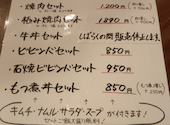 焼肉セット 1,200円
柘み焼肉セット 1,890円
牛丼セット しばらくの間販売停止します。
ビビンバセット 850円
石焼ビビンバセット 950円
もつ煮丼セット 850円
キムチ・ナムル・サラダ・スープが付きます!
セットご飯大盛り無料!